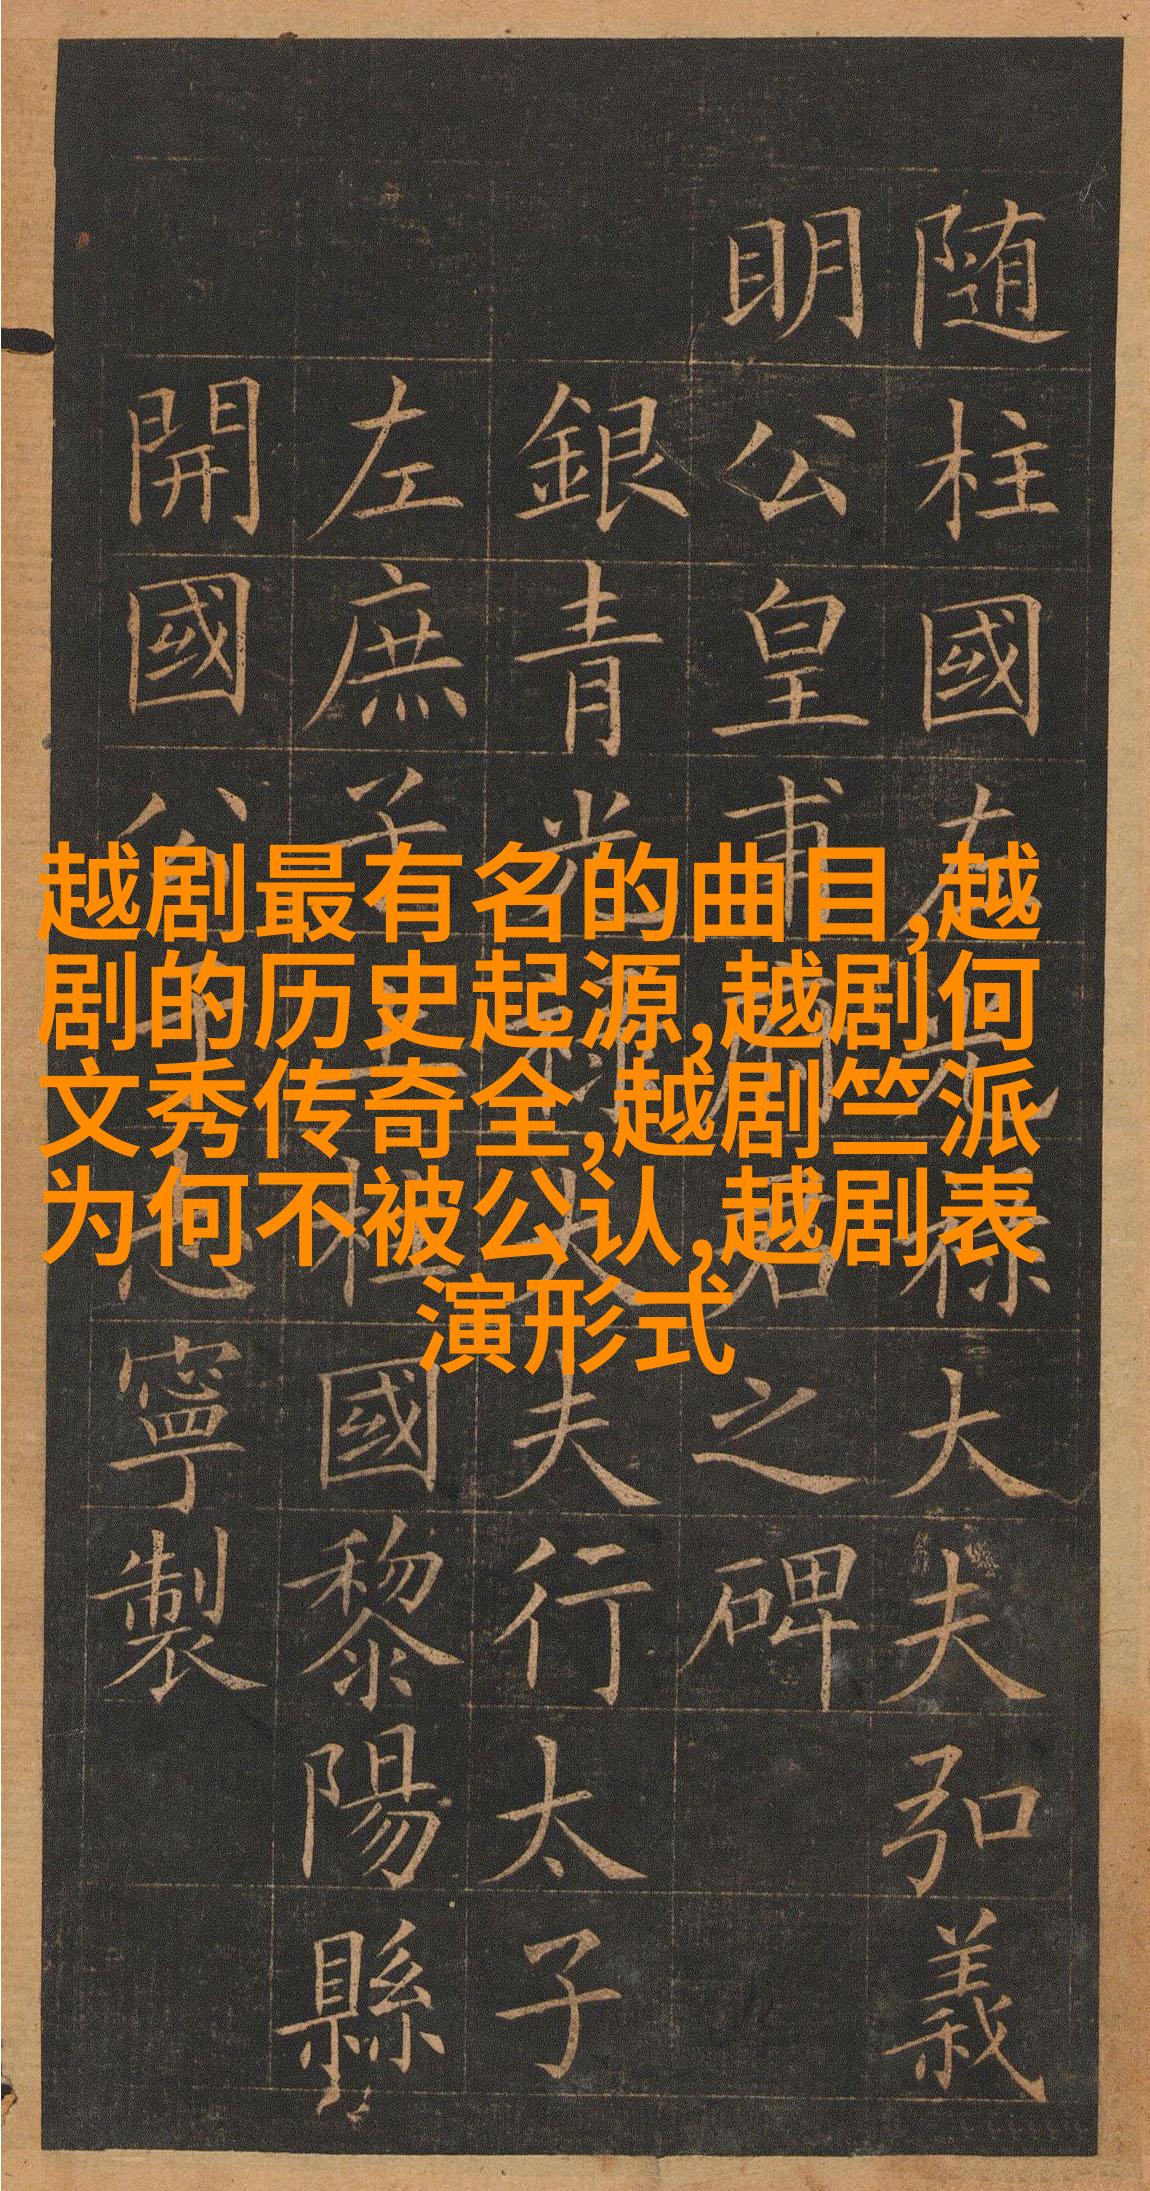 越剧最有名的曲目,越
剧的历史起源,越剧何
文秀传奇全,越剧竺派
为何不被公认,越剧表
演形式
随柱國左光禄大夫弘義
明公皇甫府君之碑
銀青光禄大夫行太子
左庶子上柱國黎陽縣
開國公于志寧製